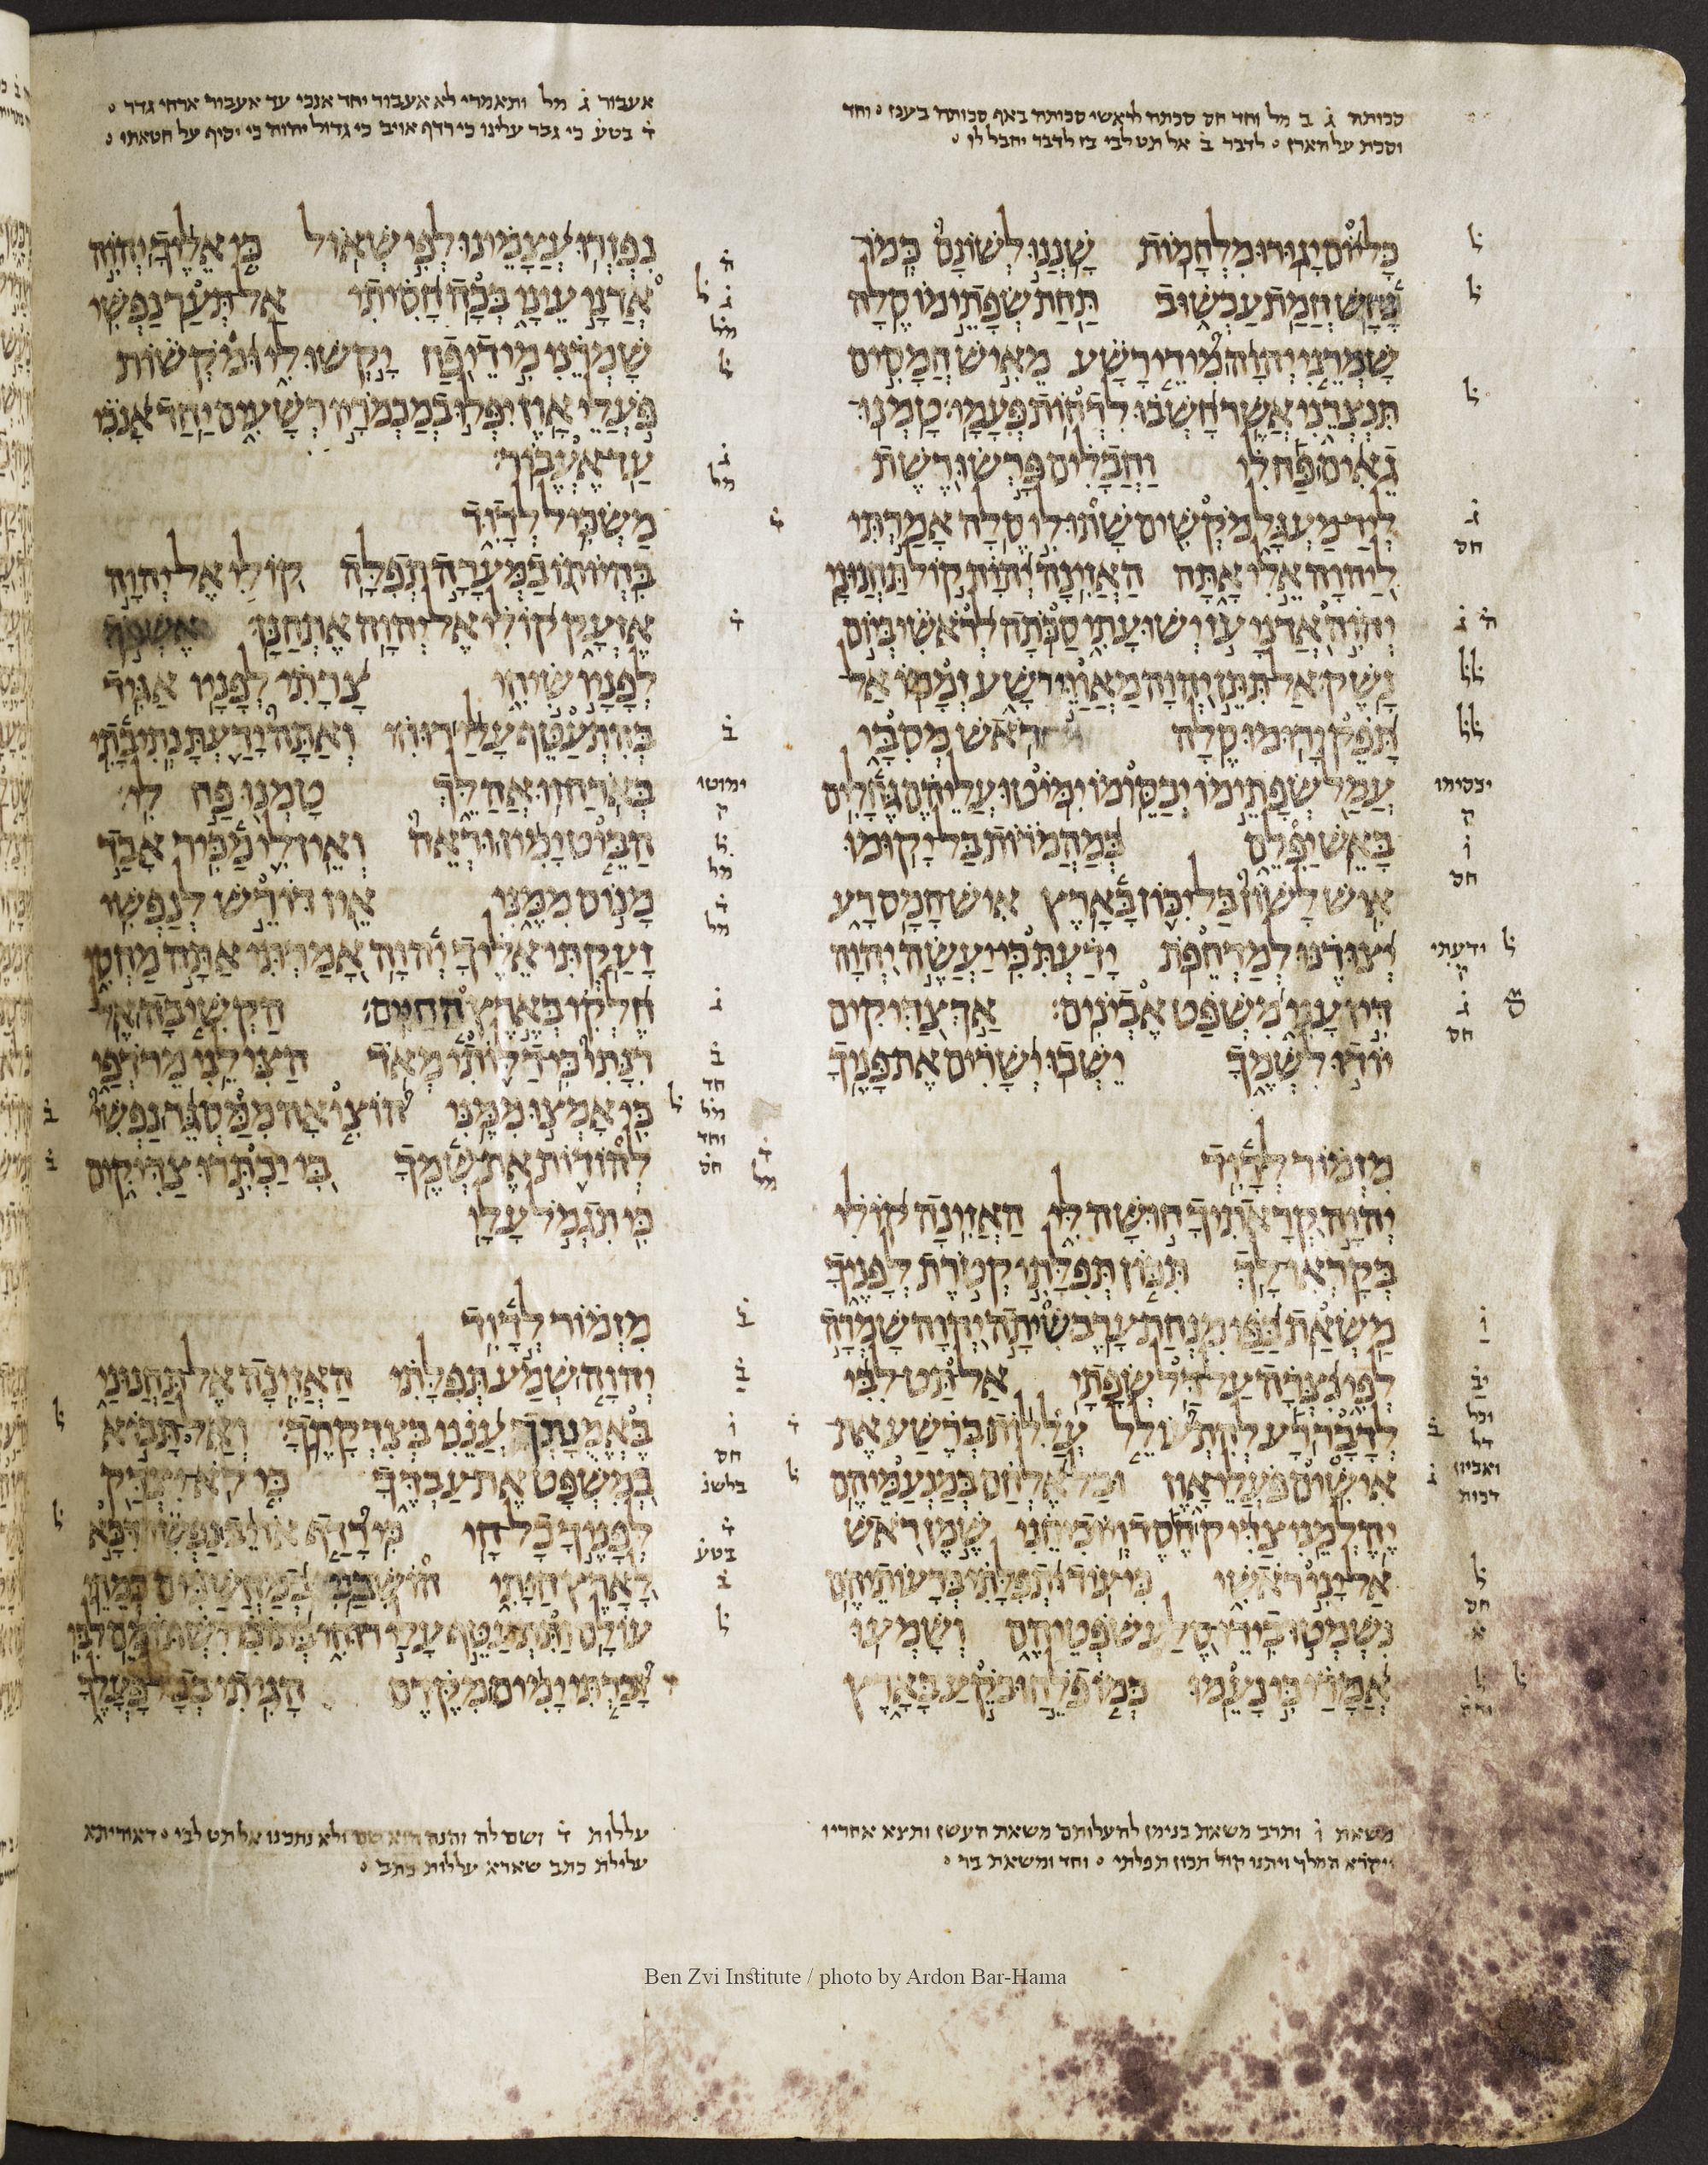 סכותה ג ב מל וחד חס סכתה לראשי סכותה באף סכותה בענן ׃ וחד
וסכת על הארן ׃ לדבר ב אל תט לבי בז לדבר יחבל לו ׃
אעבור ג מל ותאמרי לא אעבור יחד אנכי עד אעבור ארחי גדר ׃
ד בטע כי גבר עלינו כי רדף אויב כי גדול יהוה כי יסיף על חטאתו ׃
כל יום יגורו מלחמות שננו לשונם כמו
נחש חמת עכשוב תחת שפתימו סלה
שמרני יהוה מידי רשע מאיש חמסים
תנצרני אשר חשבו לדחות פעמי׃ טמנו
גאים פח לי וחבלים פרשו רשת
ליד מעגל מקשים שתו לי סלה אמרתי
ליהוה אלי אתה האזינה יהוה קול תחנוני
יהוה אדני עז ישועתי סכתה לראשי ביום
נשק אל תתן יהוה מאויי רשע זממו אל
תפק ירומו סלה ראש מסבי
עמל שפתימו יכסומו ימיטו עליהם גחלים
באש יפלם במהמרות בל יקומו
איש לשון בל יכון בארץ איש חמס רע
יצודנו למדחפת ידעת כי יעשה יהוה
דין עני משפט אבינים׃ אך צדיקים
יודו לשמך ישבו ישרים את פניך
מזמור לדוד
יהוה קראתיך חושה לי האזינה קולי
בקראי לך תכון תפלתי קטרת לפניך
משאת כפי מנחת ערב שיתה יהוה שמרה
לפי נצרה על דל שפתי אל תט לבי
לדבר רע להתעולל עללות ברשע את
אישים פעלי און ובל אלחם במנעמיהם
יהלמני צדיק חסד ויוכיחני שמן ראש
אל יני ראשי כי עוד ותפלתי ברעותיהם
נשמטו בידי סלע שפטיהם ושמעו
אמרי כי נעמו כמו פלח ובקע בארץ
נפזרו עצמינו לפי שאול כי אליך יהוה
אדני עיני בכה חסיתי אל תער נפשי
שמרני מידי פח יקשו לי ומקשות
פעלי און יפלו במכמריו רשעים יחד אנכי
עד אעבור׃
משכיל לדוד
בהיותו במערה תפלה קולי אל יהוה
אזעק קולי אל יהוה אתחנן׃ אשפך
לפניו שיחי צרתי לפניו אגיד
בהתעטף עלי רוחי ואתה ידעת נתיבתי
בארח זו אהלך טמנו פח לי׃
הביט ימין וראה ואין לי מכיר אבד
מנוס ממני אין דורש לנפשי
זעקתי אליך יהוה אמרתי אתה מחסי
חלקי בארץ החיים׃ הקשיבה אל
רנתי כי דלותי מאד הצילני מרדפי
כי אמצו ממני הוציאה ממסגר נפשי
להודות את שמך בי יכתרו צדיקים
כי תגמל עלי
מזמור לדוד
יהוה שמע תפלתי האזינה אל תחנוני
באמנתך ענני בצדקתך׃ ואל תבוא
במשפט את עבדך כי לא יצדק
לפניך כל חי כי רדף אויב נפשי דכא
לארץ חיתי הושיבני במחשכים כמתי
עולם ותתעטף עלי רוחי בתוכי ישתומם לבי
זכרתי ימים מקדם הגיתי בכל פעלך
משאת ו ותרב משאת בנימן להעלותם משאת העשן ותצא אחריו
ויקרא המלך ויתנו קול תכון תפלתי ׃ וחד ומשאת בר ׃
עללות ד ושם לה והנה הוא שם ולא נתכנו אל תט לבי ׃ דאוריתא
עלילת כתב שארא עללות כתב ׃
Ben Zvi Institute / photo by Ardon Bar-Hama